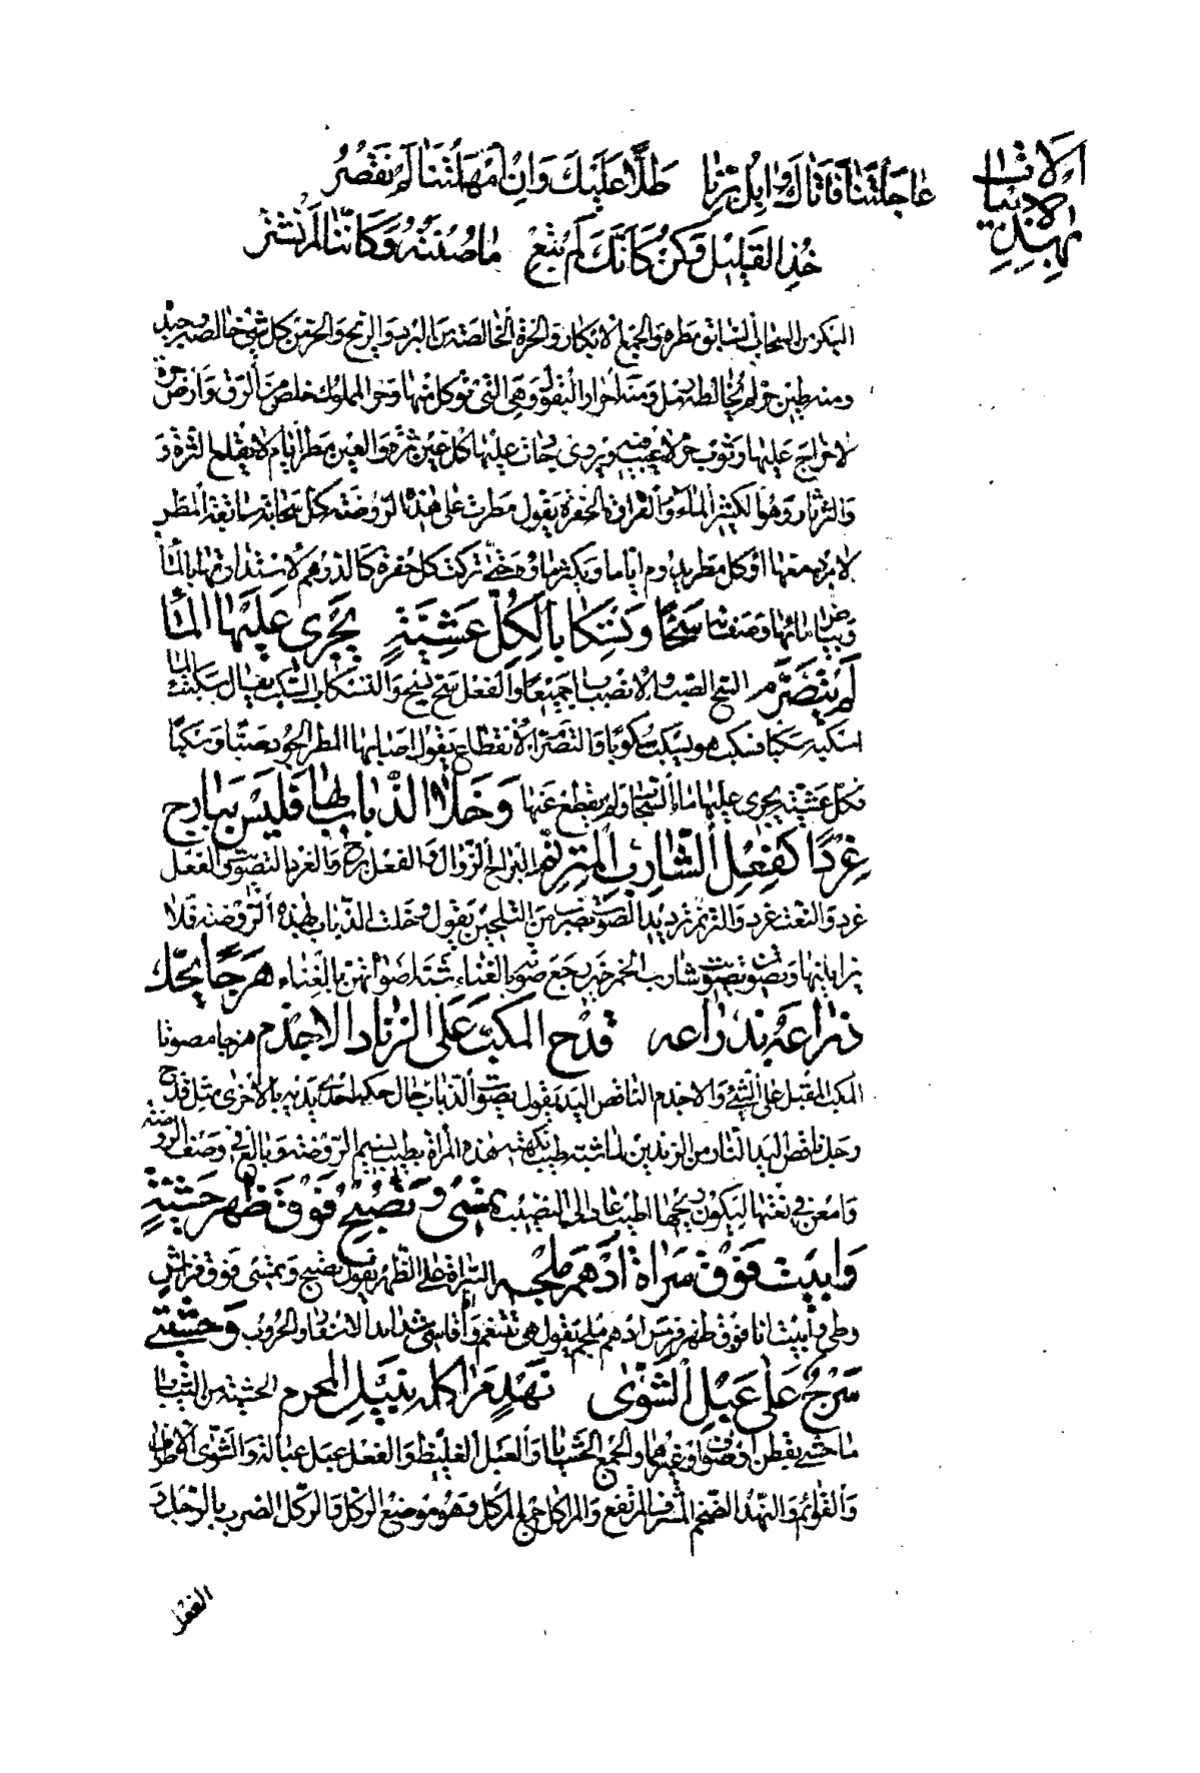 عاجلتنا فاتاك وابل برنا طلا عليك وان امهلتنا لم نقصر
خذ القليل وكن كانك لم تبع ما صنته وكاننا لم نشتر
البكر من السحاب السابق مطره والجمع الابكار والحرة الخالصة من البرد والريح والحر من كل شئ خالصه وجيده
ومنه طين حر لم يخالطه رمل ومنه احرار البقول وهى التى توكل منها وحر المملوك خلص من الرق وارض حرة
لا خراج عليها وثوب حر لا عيب فيه ويروى جادت عليها كل عين ثرة والعين مطر ايام لا يقلع والثرة و
والثرثار وهو الكثير الماء والقرارة الحفرة يقول مطرت على هذه الروضة كل سحابة سابقة المطر
لا برد معها او كل مطر يدوم اياما ويكثر ماؤه حتى تركت كل حفرة كالدرهم لاستدارتها بالماء
وبياض مائها وصفائه سحا وتسكابا لكل عشية يجرى عليها الماء
لم يتصرم السح الصب والانصباب جميعا والفعل سح يسح والتسكاب السكب يقال سكبت الماء
اسكبه سكبا فسكب هو يسكب سكوبا والتصرم الانقطاع يقول اصابها المطر الجود صبا وسكبا
فكل عشية يجرى عليها ماء السحاب ولم ينقطع عنها وخلا الذباب بها فليس ببارح
غردا كفعل الشارب المترنم البراح الزوال والفعل برح والغرد التصويت والفعل
غرد والنعت غرد والترنم ترديد الصوت بضرب من التلحين يقول وخلت الذباب بهذه الروضة فلا
يزايلنها ويصوتن تصويت شارب الخمر حين رجع صوته بالغناء شبه اصواتهن بالغناء هزجا يحك
ذراعه بذراعه قدح المكب على الزناد الاجذم هزجا مصوتا
المكب المقبل على الشئ والاجذم الناقص اليد يقول يصوت الذباب حال حكه احدى يديه بالاخرى مثل قدح
رجل ناقص اليد النار من الزندين لما شبه طيب نكهة هذه المراة بطيب نسيم الروضة وبالغ فى وصف الروضة
وامعن فى نعتها ليكون ريحها اطيب عاد الى النسيب تمسى وتصبح فوق ظهر حشية
وابيت فوق سراة ادهم ملجم السراة اعلى الظهر يقول تصبح وتمسى فوق فراش
وطئ وابيت انا فوق ظهر فرس ادهم ملجم يقول هى تتنعم وانا اقاسى شدايد الاسفار والحروب وحشيتى
سرج على عبل الشوى نهد مراكله نبيل المحزم الحشية من الثياب
ما حشى بقطن او صوف او غيرهما والجمع الحشايا والعبل الغليظ والفعل عبل عبالة والشوى الاطراف
والقوائم والنهد الضخم المشرف المرتفع والمراكل جمع المركل وهو موضع الركل والركل الضرب بالرجل و
الفعل